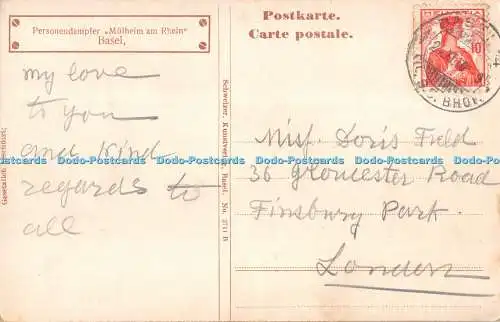 Personendampfer „Mülheim am Rhein"
Basel,
Postkarte.
Carte postale.
HELVETIA
10
my love
to you
and kind
regards to
all
Miss. Doris Field
36 Gloucester Road
Finsbury Park.
London
Gesetzlich geschützt;
Schweizer. Kunstverlag, Basel, No. 2711 B
Dodo-Postcards Dodo-Postcards Dodo-Postcards Dodo-Postcards Dodo-Postcards Dodo-Postcards